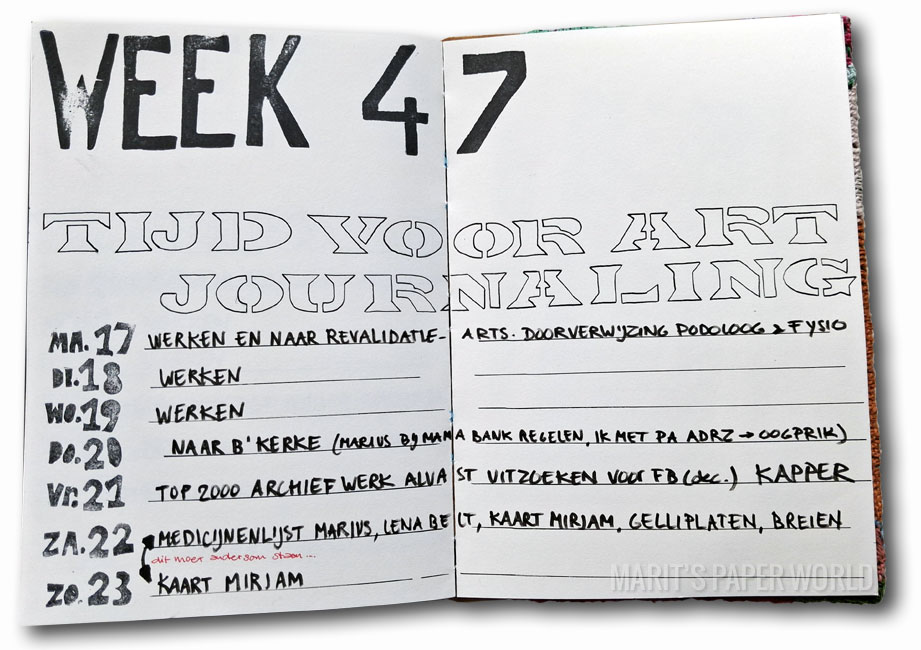 WEEK 47
TIJD VOOR ART
JOURNALING
MA. 17 WERKEN EN NAAR REVALIDATIE-ARTS. DOORVERWIJZING PODOLOOG & FYSIO
DI. 18 WERKEN
WO. 19 WERKEN
DO. 20 NAAR B'KERKE (MARIUS BIJ MAMA BANK REGELEN, IK MET PA ADRZ → OOGPRIK)
VR. 21 TOP 2000 ARCHIEFWERK ALVAST UITZOEKEN VOOR FB (dec.) KAPPER
ZA. 22 MEDICIJNENLIJST MARIUS, LENA BELT, KAART MIRJAM, GELLIPLATEN, BREIEN
dit moet andersom staan...
ZO. 23 KAART MIRJAM
MARIT'S PAPER WORLD